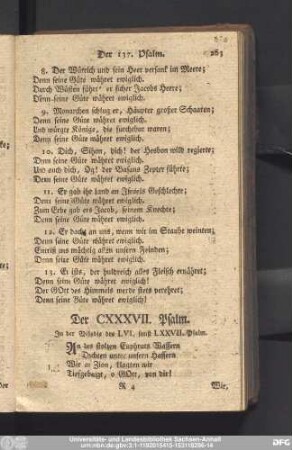 Der 137. Psalm. 263
8. Der Wütrich und sein Heer versank im Meere;
Denn seine Güte währet ewiglich.
Durch Wüsten führt' er sicher Jacobs Heere;
Denn seine Güte währet ewiglich.
9. Monarchen schlug er, Häupter großer Schaaren;
Denn seine Güte währet ewiglich.
Und würgte Könige, die furchtbar waren;
Denn seine Güte währet ewiglich.
10. Dich, Sihon, dich! der Hesbon wild regierte;
Denn seine Güte währet ewiglich.
Und auch dich, Og! der Basans Zepter führte;
Denn seine Güte währet ewiglich.
11. Er gab ihr Land an Israels Geschlechte;
Denn seine Güte währet ewiglich.
Zum Erbe gab ers Jacob, seinem Knechte;
Denn seine Güte währet ewiglich.
12. Er dacht an uns, wenn wir im Staube weinten;
Denn seine Güte währet ewiglich.
Entriß uns mächtig allen unsern Feinden;
Denn seine Güte währet ewiglich.
13. Er ists, der huldreich alles Fleisch ernährt;
Denn seine Güte währet ewiglich!
Der GOtt des Himmels werde stets verehret;
Denn seine Güte währet ewiglich!
Der CXXXVII. Psalm.
In der Melodie des LVI. sonst LXXVII. Psalm.
An des stolzen Euphrats Wassern
Dachten unter unsern Hassern
Wir an Zion, klagten wir
Tiefgebeugt, o GOtt, von dir!
R 4 Wir,
Universitäts- und Landesbibliothek Sachsen-Anhalt